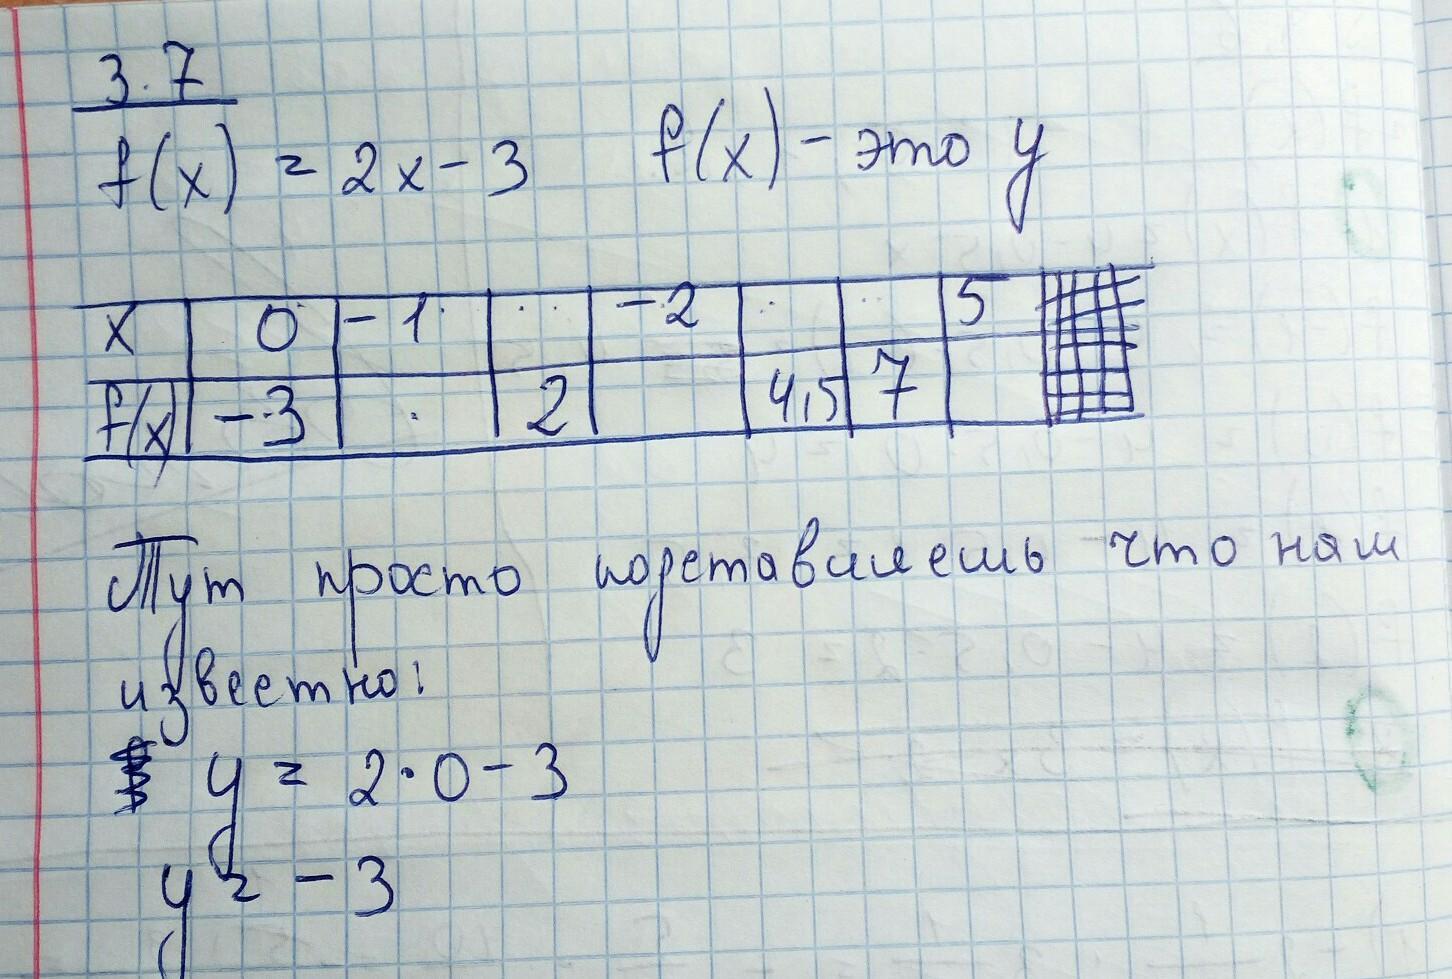 3.7
f(x) = 2x - 3 f(x) - это y
x 0 -1 -2 5
f(x) -3 2 4,5 7
Тут просто подставляешь что нам
известно:
y = 2·0-3
y = -3